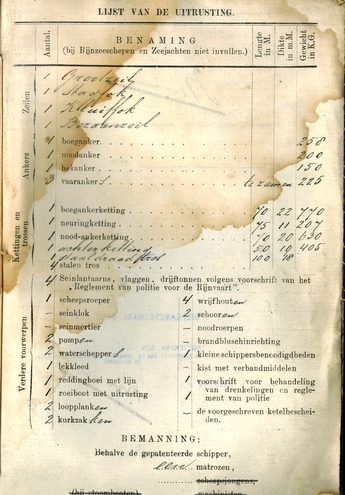 LIJST VAN DE UITRUSTING.
Aantal. BENAMING Lengte in M. Dikte in m.M. Gewicht in K.G.
(bij Rijnzeeschepen en Zeejachten niet invullen.)
Zeilen
1 Grootzeil
1 Stagfok
1 Kluiffok
1 Bezaanzeil
Ankers
boeganker 258
1 noodanker 200
1 hekanker 150
3 vaarankers te zamen 225
Kettingen en trossen
1 boegankerketting 70 22 770
1 neuringketting 75 11 207
1 nood-ankerketting 70 20 630
1 achterketting 50 10 405
1 staaldraadtros 100 18
4 stalen tros
4 Seinlantaarns, vlaggen, drijftonnen volgens voorschrift van het
„Reglement van politie voor de Rijnvaart".
Verdere voorwerpen
1 scheepsroeper 4 wrijfhouten
– seinklok 2 schooren
– seinmortier – noodroerpen
2 pompen – brandbluschinrichting
2 waterscheppers – kleine schippersbenoodigdheden
1 lekkleed – kist met verbandmiddelen
1 reddingboei met lijn 1 voorschrift voor behandeling
1 roeiboot met uitrusting van drenkelingen en regle-
ment van politie
2 loopplanken – de voorgeschreven ketelbeschei-
2 kurkzakken den.
BEMANNING:
Behalve de gepatenteerde schipper,
een matrozen,
scheepsjongens,
(bij stoombooten) machinisten